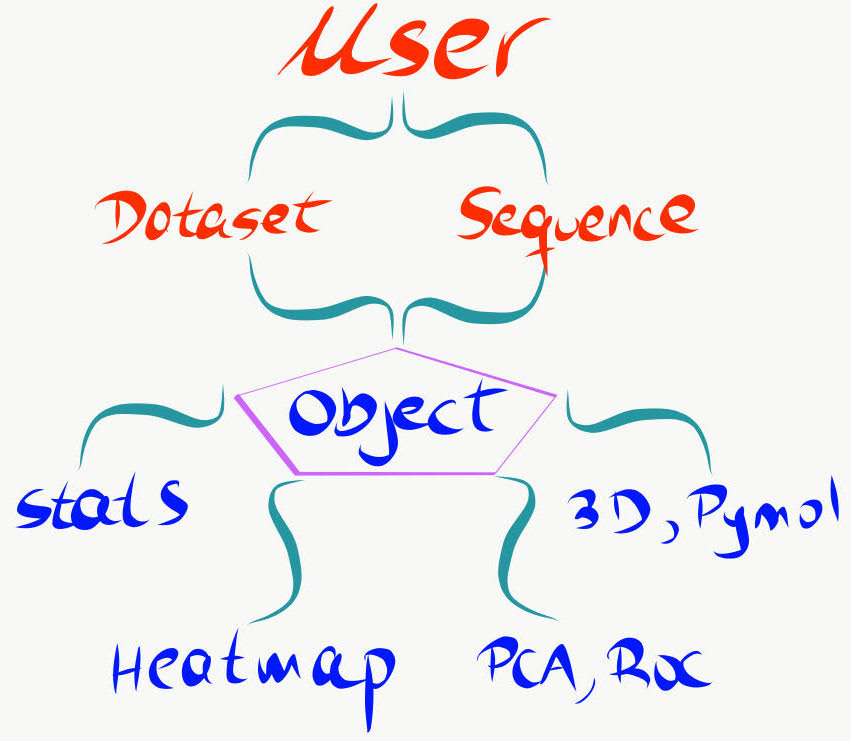 User
Dataset
Sequence
Object
stats
3D, Pymol
Heatmap
PCA, Roc